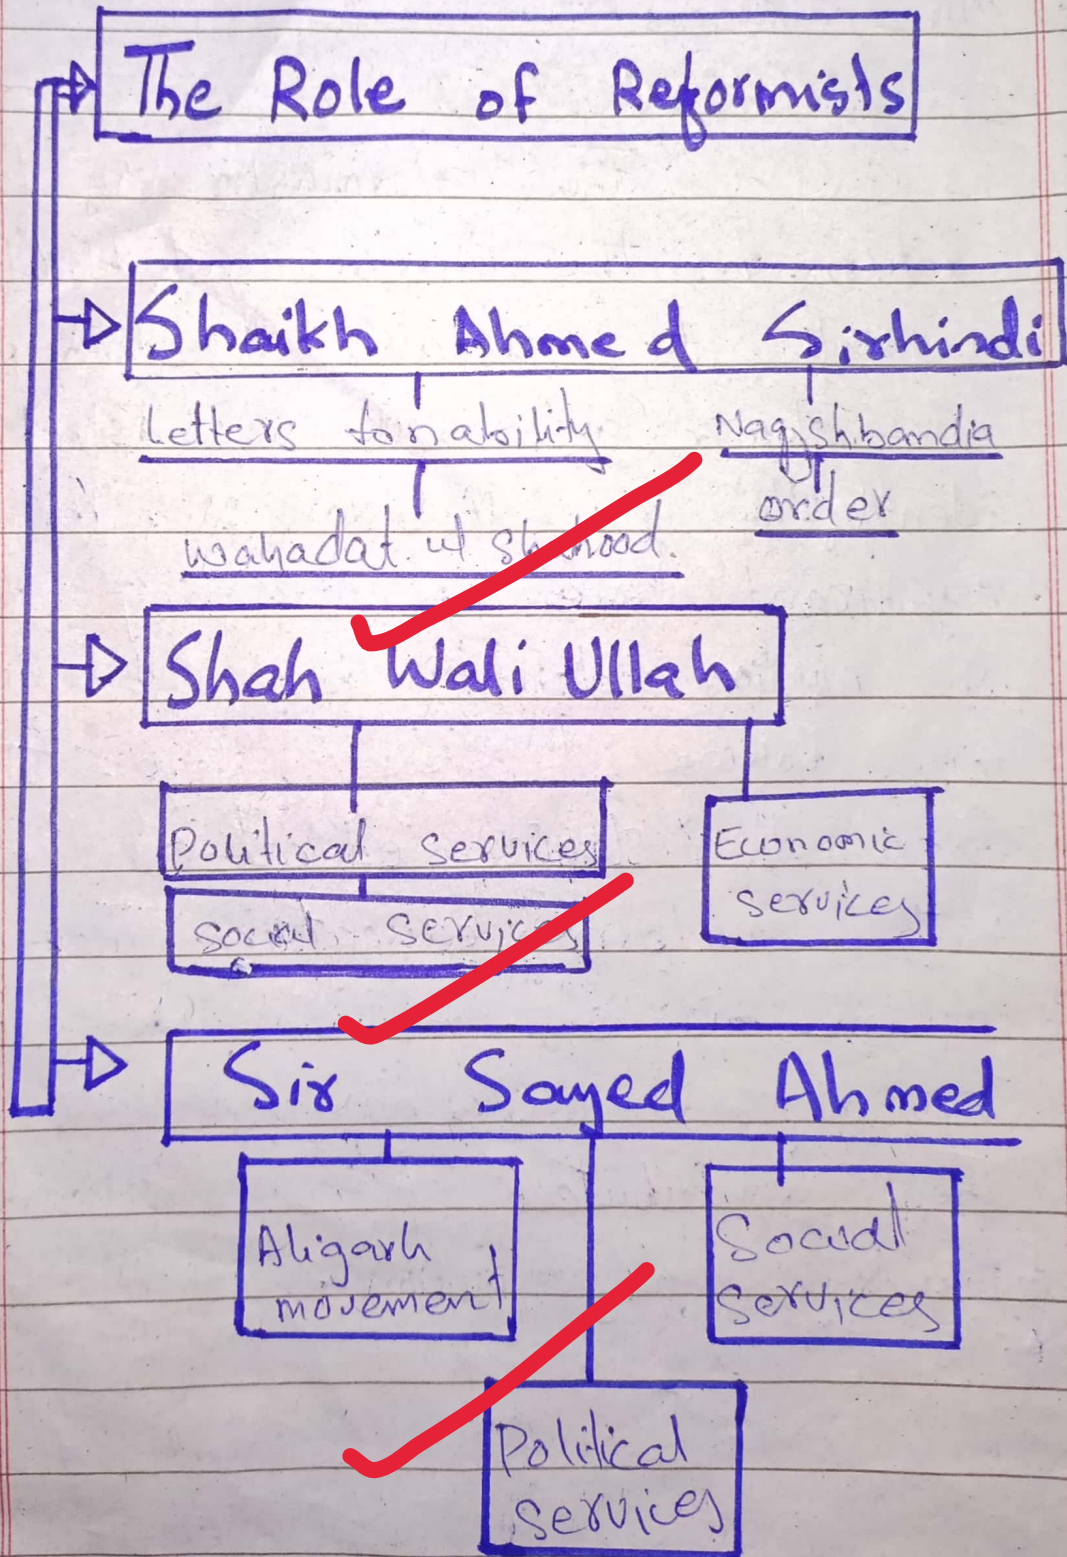 The Role of Reformists
Shaikh Ahmed Sirhindi
Letters to nability
Naqishbandia
order
wahadat ul Shahood.
Shah Wali Ullah
Political services
Economic
services
social services
Sir Sayed Ahmed
Aligarh
movement
Social
services
Political
services